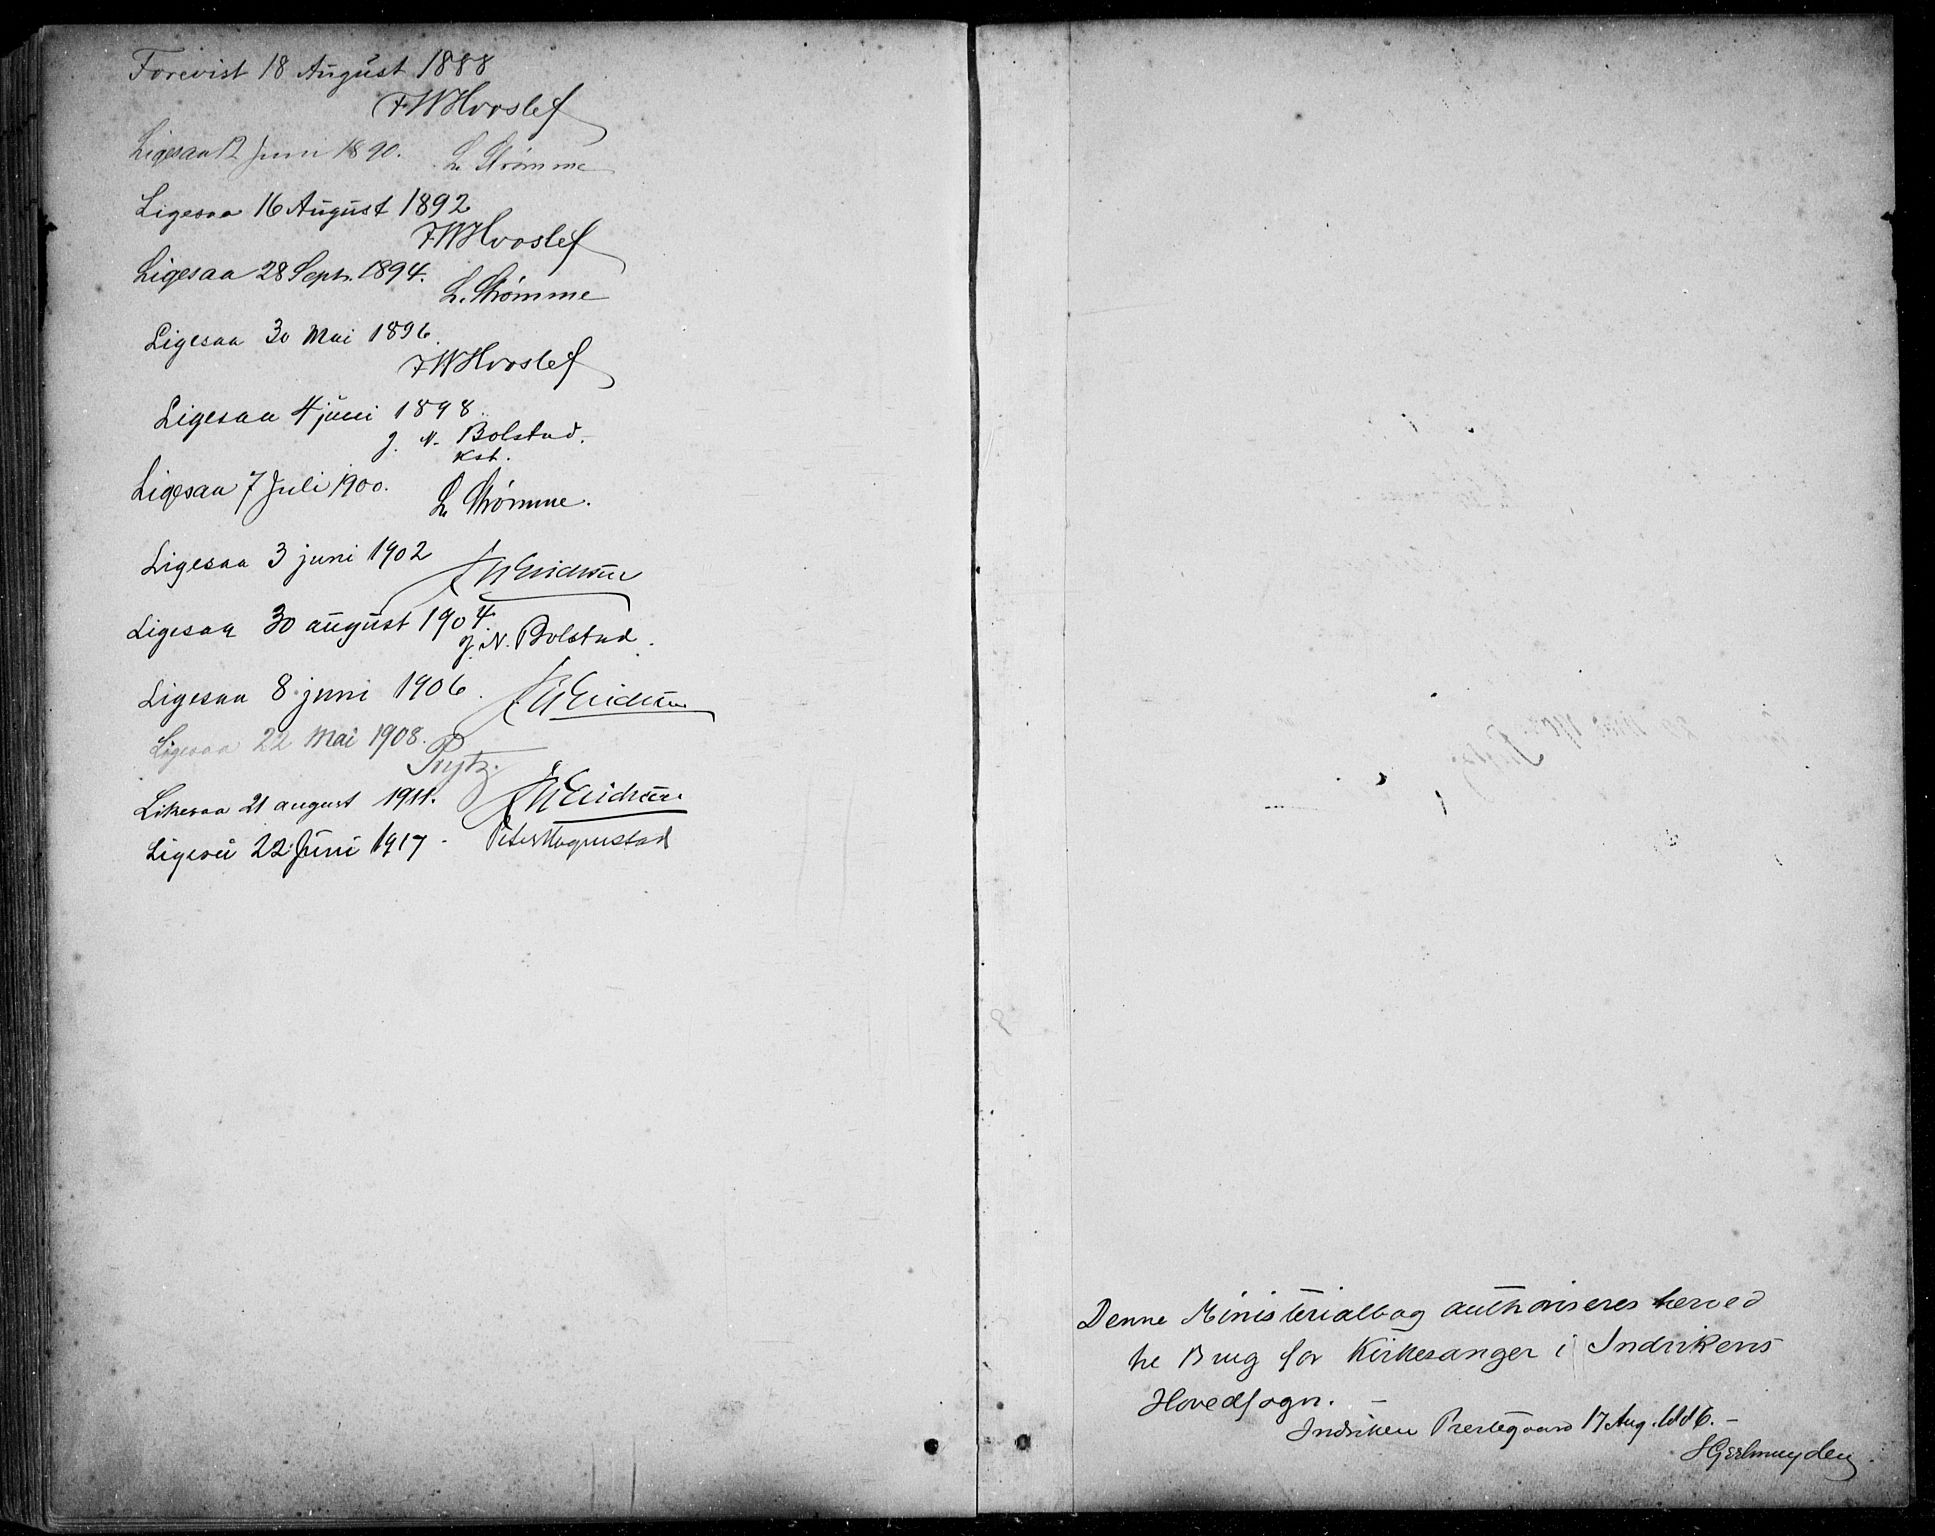 Forevist 18 August 1888
FWHvoslef
Ligesaa 12 Juni 1890. L. Strømme
Ligesaa 16 August 1892
FWHvoslef
Ligesaa 28 Sept. 1894. L. Strømme
Ligesaa 30 Mai 1896.
FWHvoslef
Ligesaa 4 juni 1898.
J. N. Bolstad.
Kst.
Ligesaa 7 Juli 1900. L. Strømme.
Ligesaa 3 juni 1902
Ligesaa 30 august 1904.
J. N. Bolstad.
Ligesaa 8 juni 1906.
Ligesaa 22 Mai 1908.
Prytz.
Likesaa 21 august 1911.
22 Juni 1917.
Denne Ministerialbog authoriseres herved
til Brug for Kirkesanger i
Hovedsogn. -
Prestegaard 17 Aug. 1886. -
Geelmuyden